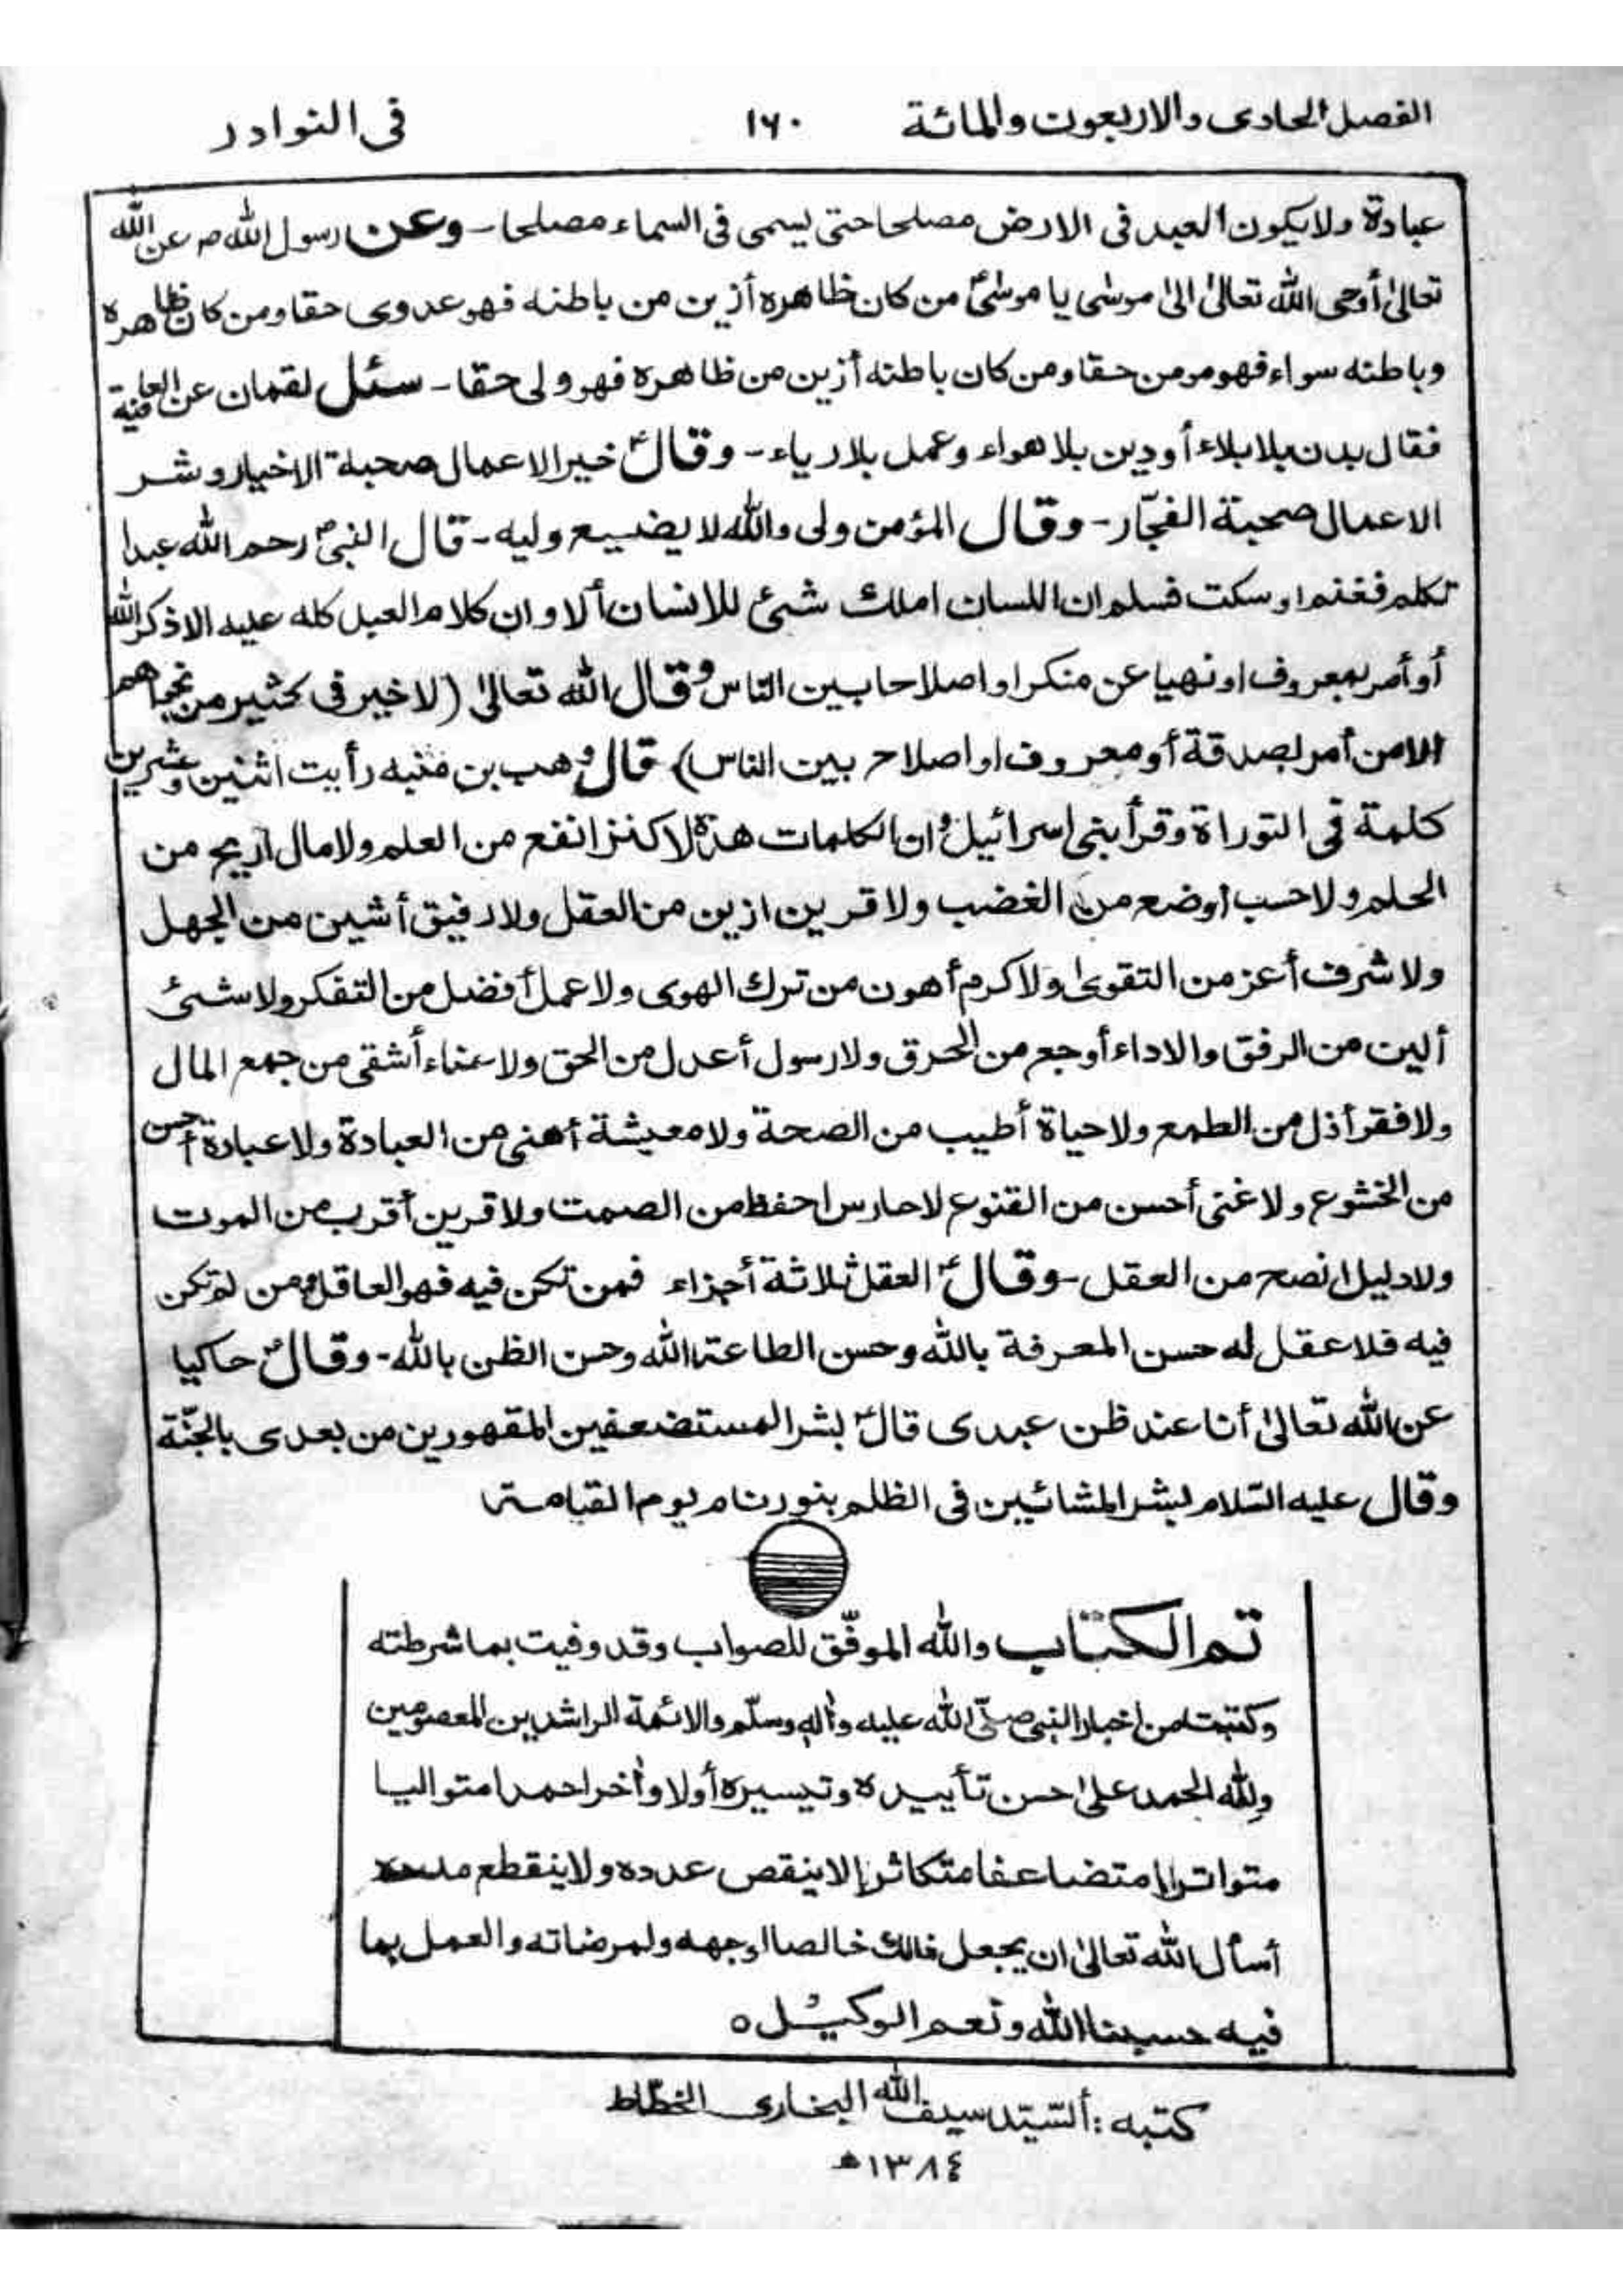 الفصل الحادى والاربعون والمائة ١٦٠ فى النوادر
عبادة ولا يكون العبد فى الارض مصلحا حتى يسمى فى السماء مصلحا - وعن رسول الله ص عن الله
تعالىٰ أوحى الله تعالىٰ الىٰ موسٰى يا موسٰى من كان ظاهره أزين من باطنه فهو عدوى حقا ومن كان ظاهره
وباطنه سواء فهو مومن حقا ومن كان باطنه أزين من ظاهره فهو ولى حقا - سئل لقمان عن العافية
فقال بدن بلا بلاء أو دين بلا هواء وعمل بلا رياء - وقالؑ خير الاعمال صحبة الاخيار وشر
الاعمال صحبة الفجّار - وقال المؤمن ولى والله لا يضييع وليه - قال النبىؐ رحم الله عبدا
تكلم فغنم او سكت فسلم ان اللسان املك شىئ للانسان ألا وان كلام العبد كله عليه الا ذكر الله
أو أمر بمعروف او نهيا عن منكر او اصلاحا بين النّاس وقال الله تعالىٰ (لا خير فى كثير من نجواهم
الا من أمر بصدقة أو معروف او اصلاح بين الناس) قال وهب بن منبه رأيت اثنين وعشرين
كلمة فى التوراة وقرأ بنى اسرائيل وان الكلمات هذه لا كنز انفع من العلم ولا مال اربح من
الحلم ولا حسب اوضع من الغضب ولا قرين ازين من العقل ولا رفيق أشين من الجهل
ولا شرف أعز من التقوىٰ ولا كرم أهون من ترك الهوى ولا عمل أفضل من التفكر ولا شىئ
ألين من الرفق والا داء أوجع من الحرق ولا رسول أعدل من الحق ولا عناء أشقى من جمع المال
ولا فقر أذل من الطمع ولا حياة أطيب من الصحة ولا معيشة أهنى من العبادة ولا عبادة أحسن
من الخشوع ولا غنى أحسن من القنوع لا حارس احفظ من الصمت ولا قرين أقرب من الموت
ولا دليل انصح من العقل - وقالؑ العقل ثلاثة أجزاء فمن تكن فيه فهو العاقل ومن لم تكن
فيه فلا عقل له حسن المعرفة بالله وحسن الطاعة الله وحسن الظن بالله - وقالؑ حاكيا
عن الله تعالىٰ أنا عند ظن عبدى قالؑ بشر المستضعفين المقهورين من بعدى بالجنّة
وقال عليه السّلام بشر المشائين فى الظلم بنور تام يوم القيامة
تم الكتاب والله الموفّق للصواب وقد وفيت بما شرطته
وكتبت من اخبار النبى صلّى الله عليه وآله وسلّم والائمة الراشدين المعصومين
ولله الحمد علىٰ حسن تأييده وتيسيره أولا وآخرا حمدا متواليا
متواترا متضاعفا متكاثرا لا ينقص عدده ولا ينقطع مدده
أسأل الله تعالىٰ ان يجعل ذالك خالصا لوجهه ولمرضاته والعمل بما
فيه حسبنا الله ونعم الوكيل ه
كتبه : ألسّيّد سيف الله البخارى الخطّاط
١٣٨٤ھ